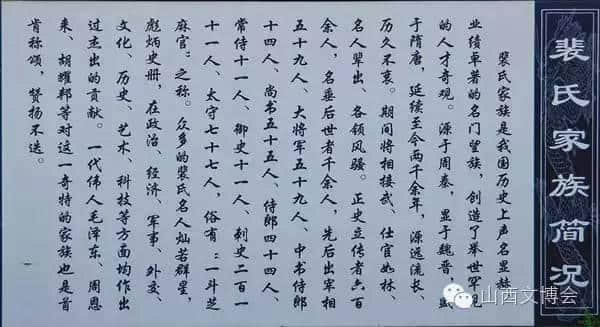 裴氏家族简况
裴氏家族是我国历史上声名显赫、
业绩卓著的名门望族，创造了举世罕见
的人才奇观。源于周秦，显于魏晋，盛
于隋唐，延续至今两千余年，源远流长、
历久不衰。期间将相接武、仕宦如林、
名人辈出、各领风骚。正史立传者六百
余人，名垂后世者千余人，先后出宰相
五十九人、大将军五十九人、中书侍郎
十四人、尚书五十五人、侍郎四十四人、
常侍十一人、御史十一人、刺史二百一
十一人、太守七十七人，俗有：“一斗芝
麻官”之称。众多的裴氏名人灿若群星，
彪炳史册，在政治、经济、军事、外交、
文化、历史、艺术、科技等方面均作出
过杰出的贡献。一代伟人毛泽东、周恩
来、胡耀邦等对这一奇特的家族也是首
肯称颂，赞扬不迭。
山西文博会